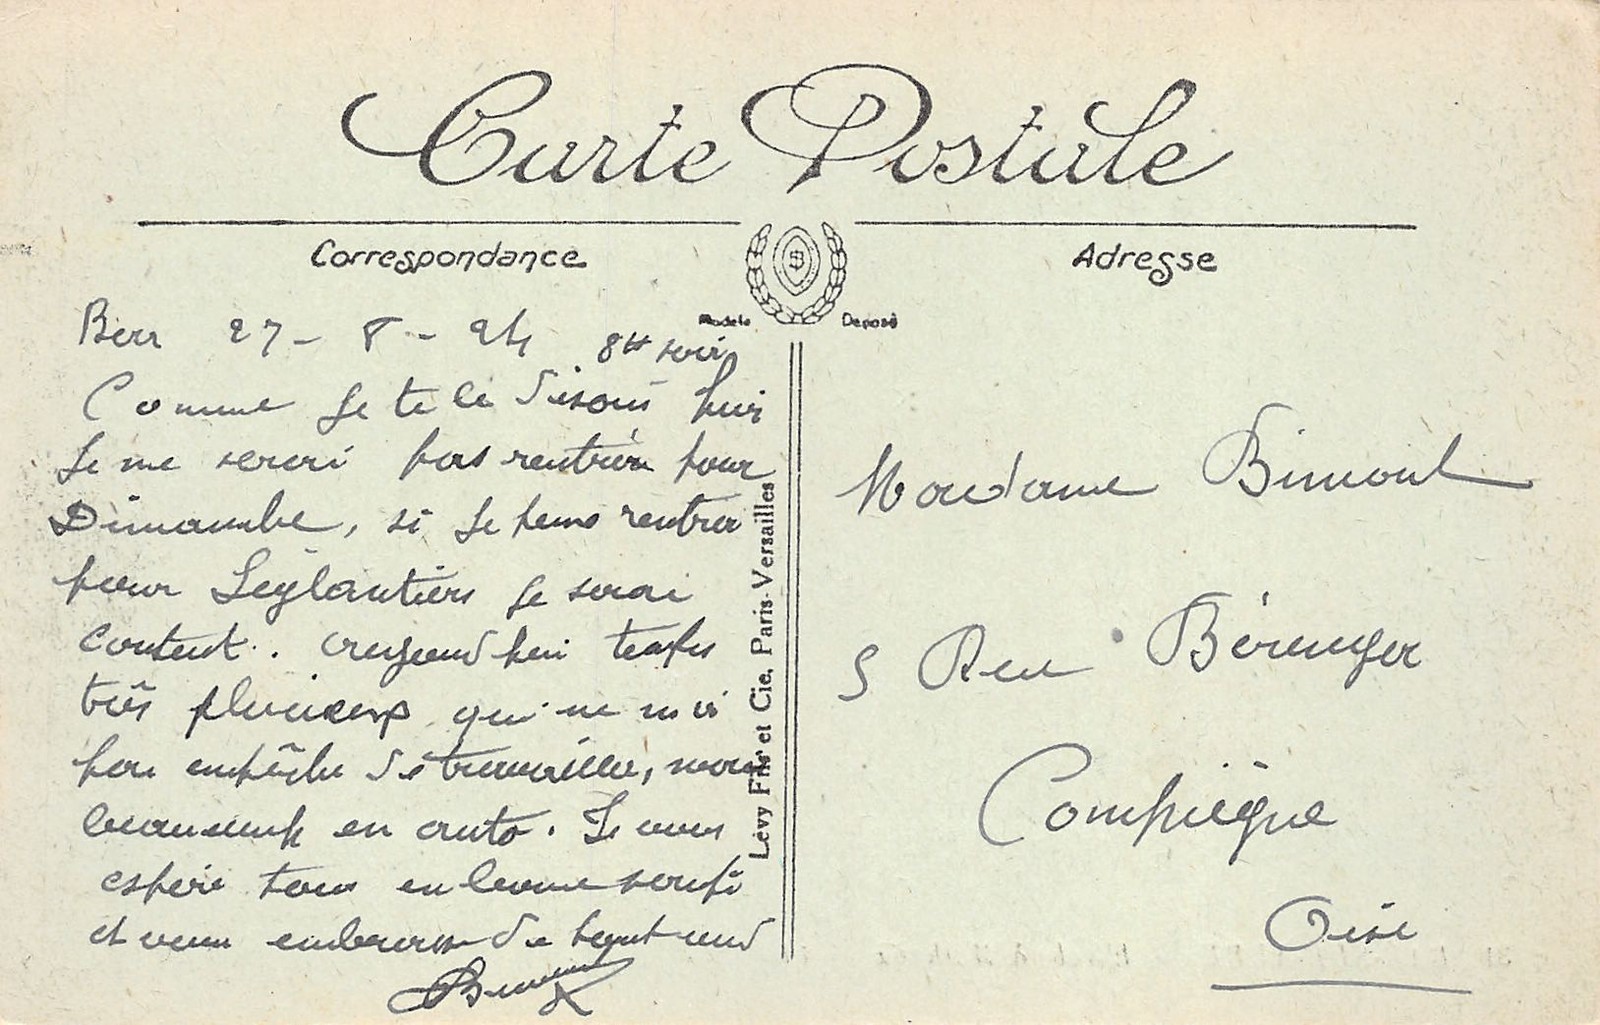 Carte Postale
Correspondance
Adresse
Modèle Déposé
27 - 8 - 24 8h soir
Comme je te le disais hier
je ne serai pas rentrer pour
Dimanche, si je peux rentrer
pour je serai
content. aujourd'hui temps
très pluvieux qui ne m'a
pas empêché de travailler, mais
beaucoup en auto. Je vous
espère tous en bonne santé
et vous embrasse de tout
Madame Bimont
5 Rue Bérenger
Compiègne
Oise
Lévy Fils et Cie, Paris-Versailles